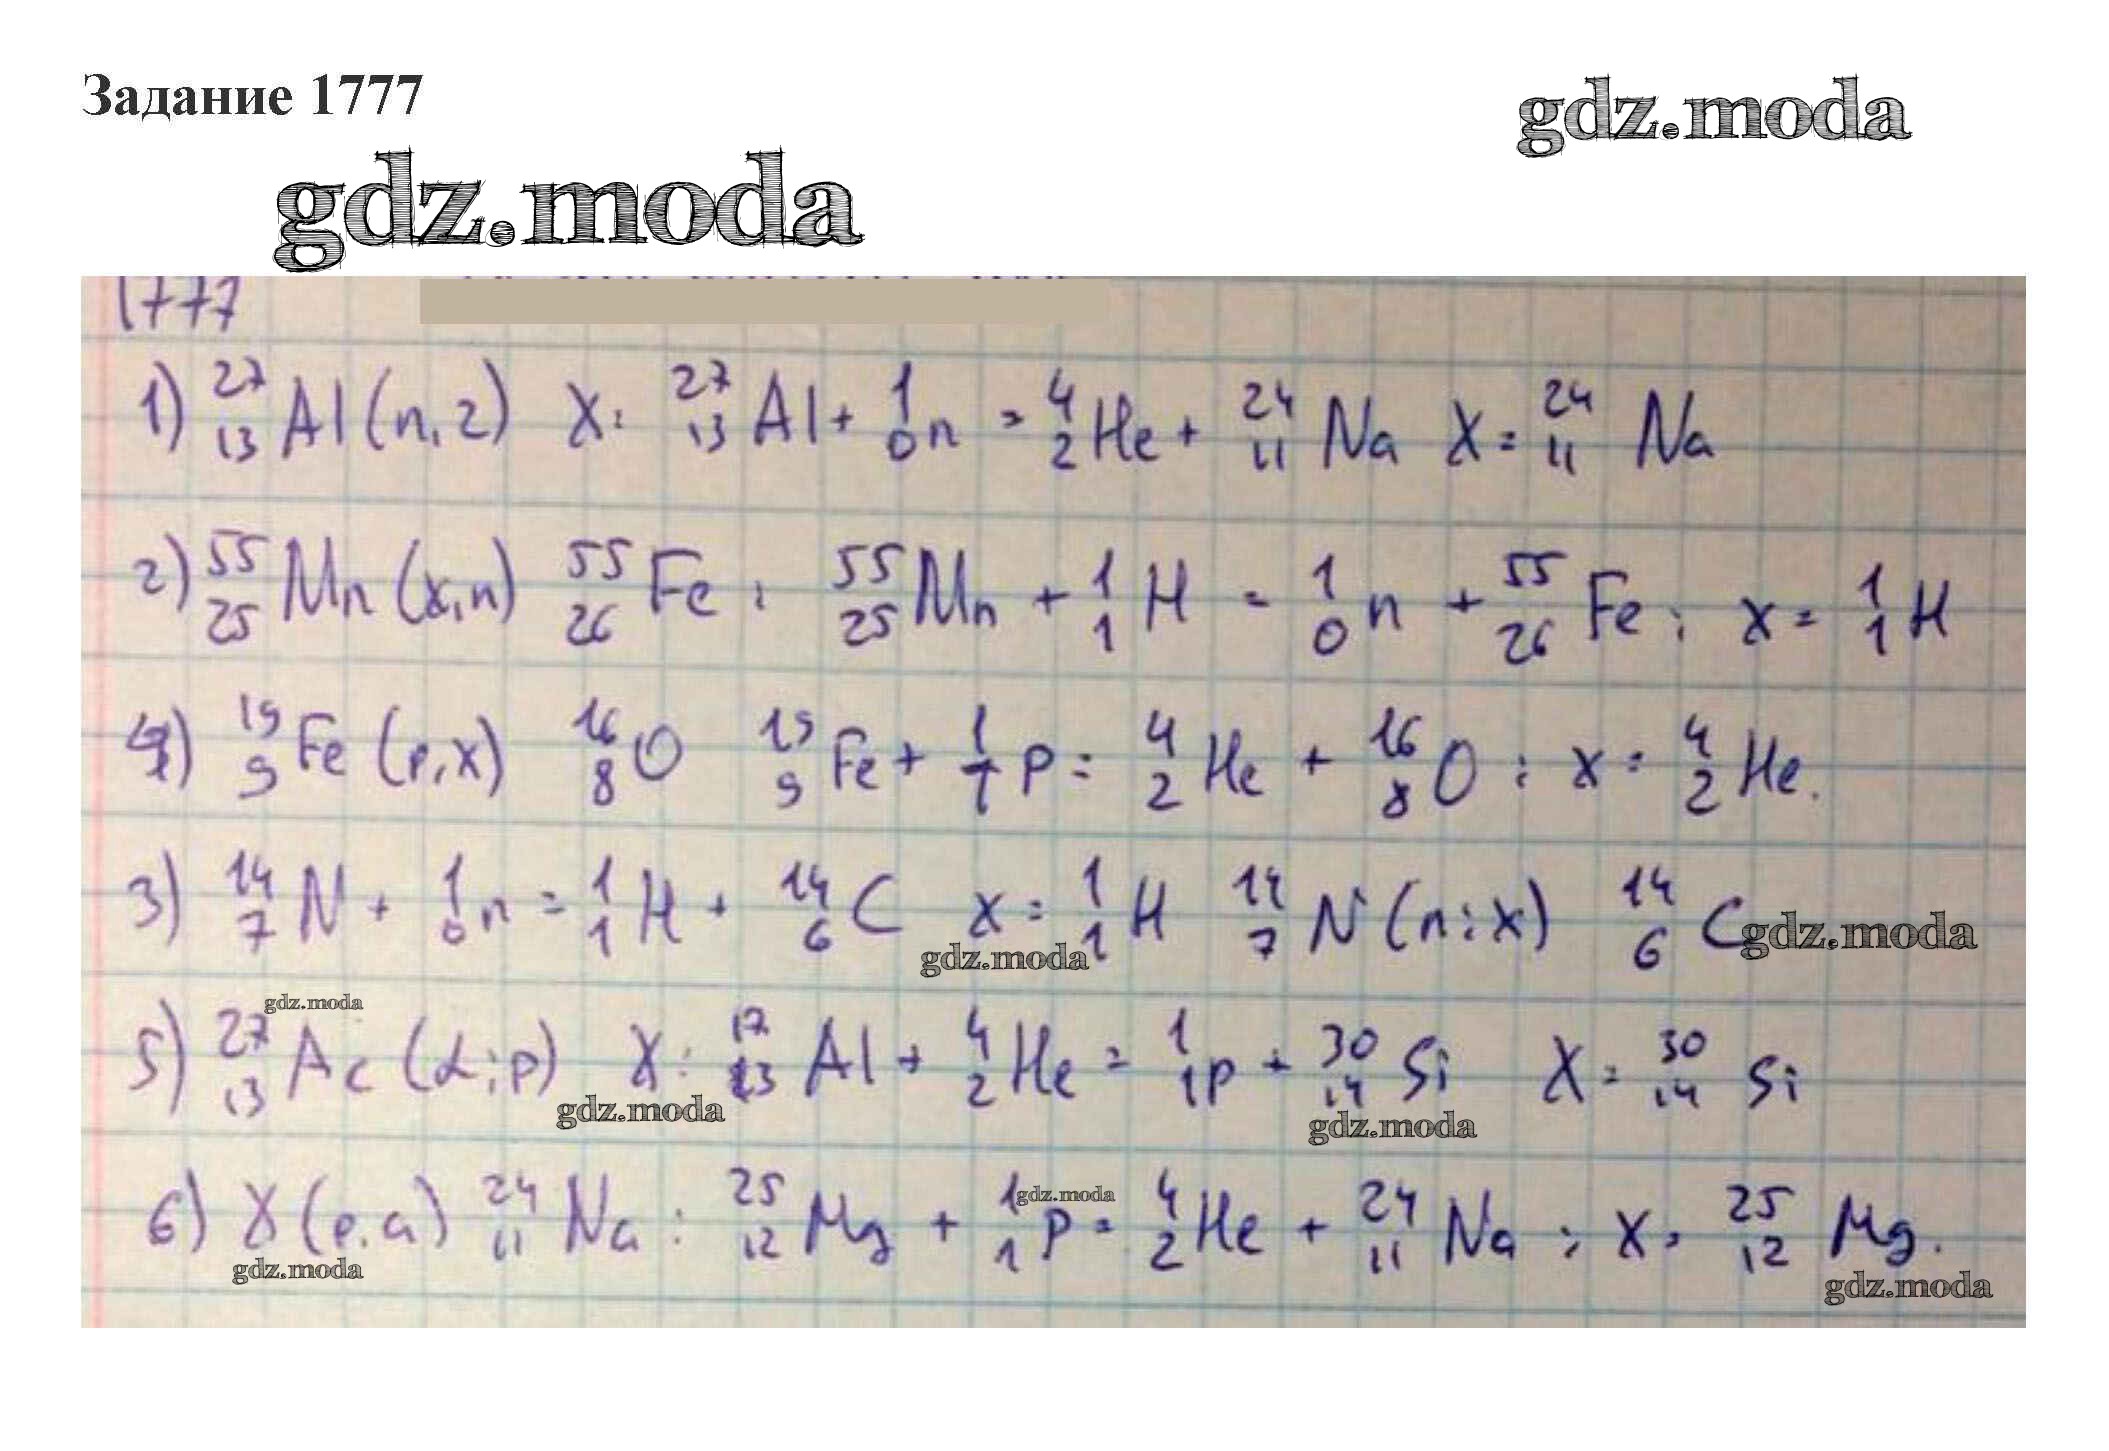 Задание 1777
gdz.moda
gdz.moda
1777
1) ²⁷₁₃Al (n, 2) X: ²⁷₁₃Al + ¹₀n = ⁴₂He + ²⁴₁₁Na X = ²⁴₁₁Na
2) ⁵⁵₂₅Mn (x, n) ⁵⁵₂₆Fe : ⁵⁵₂₅Mn + ¹₁H = ¹₀n + ⁵⁵₂₆Fe ; x = ¹₁H
4) ¹⁹₉Fe (p, x) ¹⁶₈O ¹⁹₉Fe + ¹₁p = ⁴₂He + ¹⁶₈O : x = ⁴₂He.
3) ¹⁴₇N + ¹₀n = ¹₁H + ¹⁴₆C x = ¹₁H ¹⁴₇N (n; x) ¹⁴₆C
gdz.moda
gdz.moda
gdz.moda
5) ²⁷₁₃Ac (α; p) X: ¹⁷₁₃Al + ⁴₂He = ¹₁p + ³⁰₁₄Si X = ³⁰₁₄Si
gdz.moda
gdz.moda
6) X (p, a) ²⁴₁₁Na : ²⁵₁₂Mg + ¹₁p = ⁴₂He + ²⁴₁₁Na ; x = ²⁵₁₂Mg.
gdz.moda
gdz.moda
gdz.moda